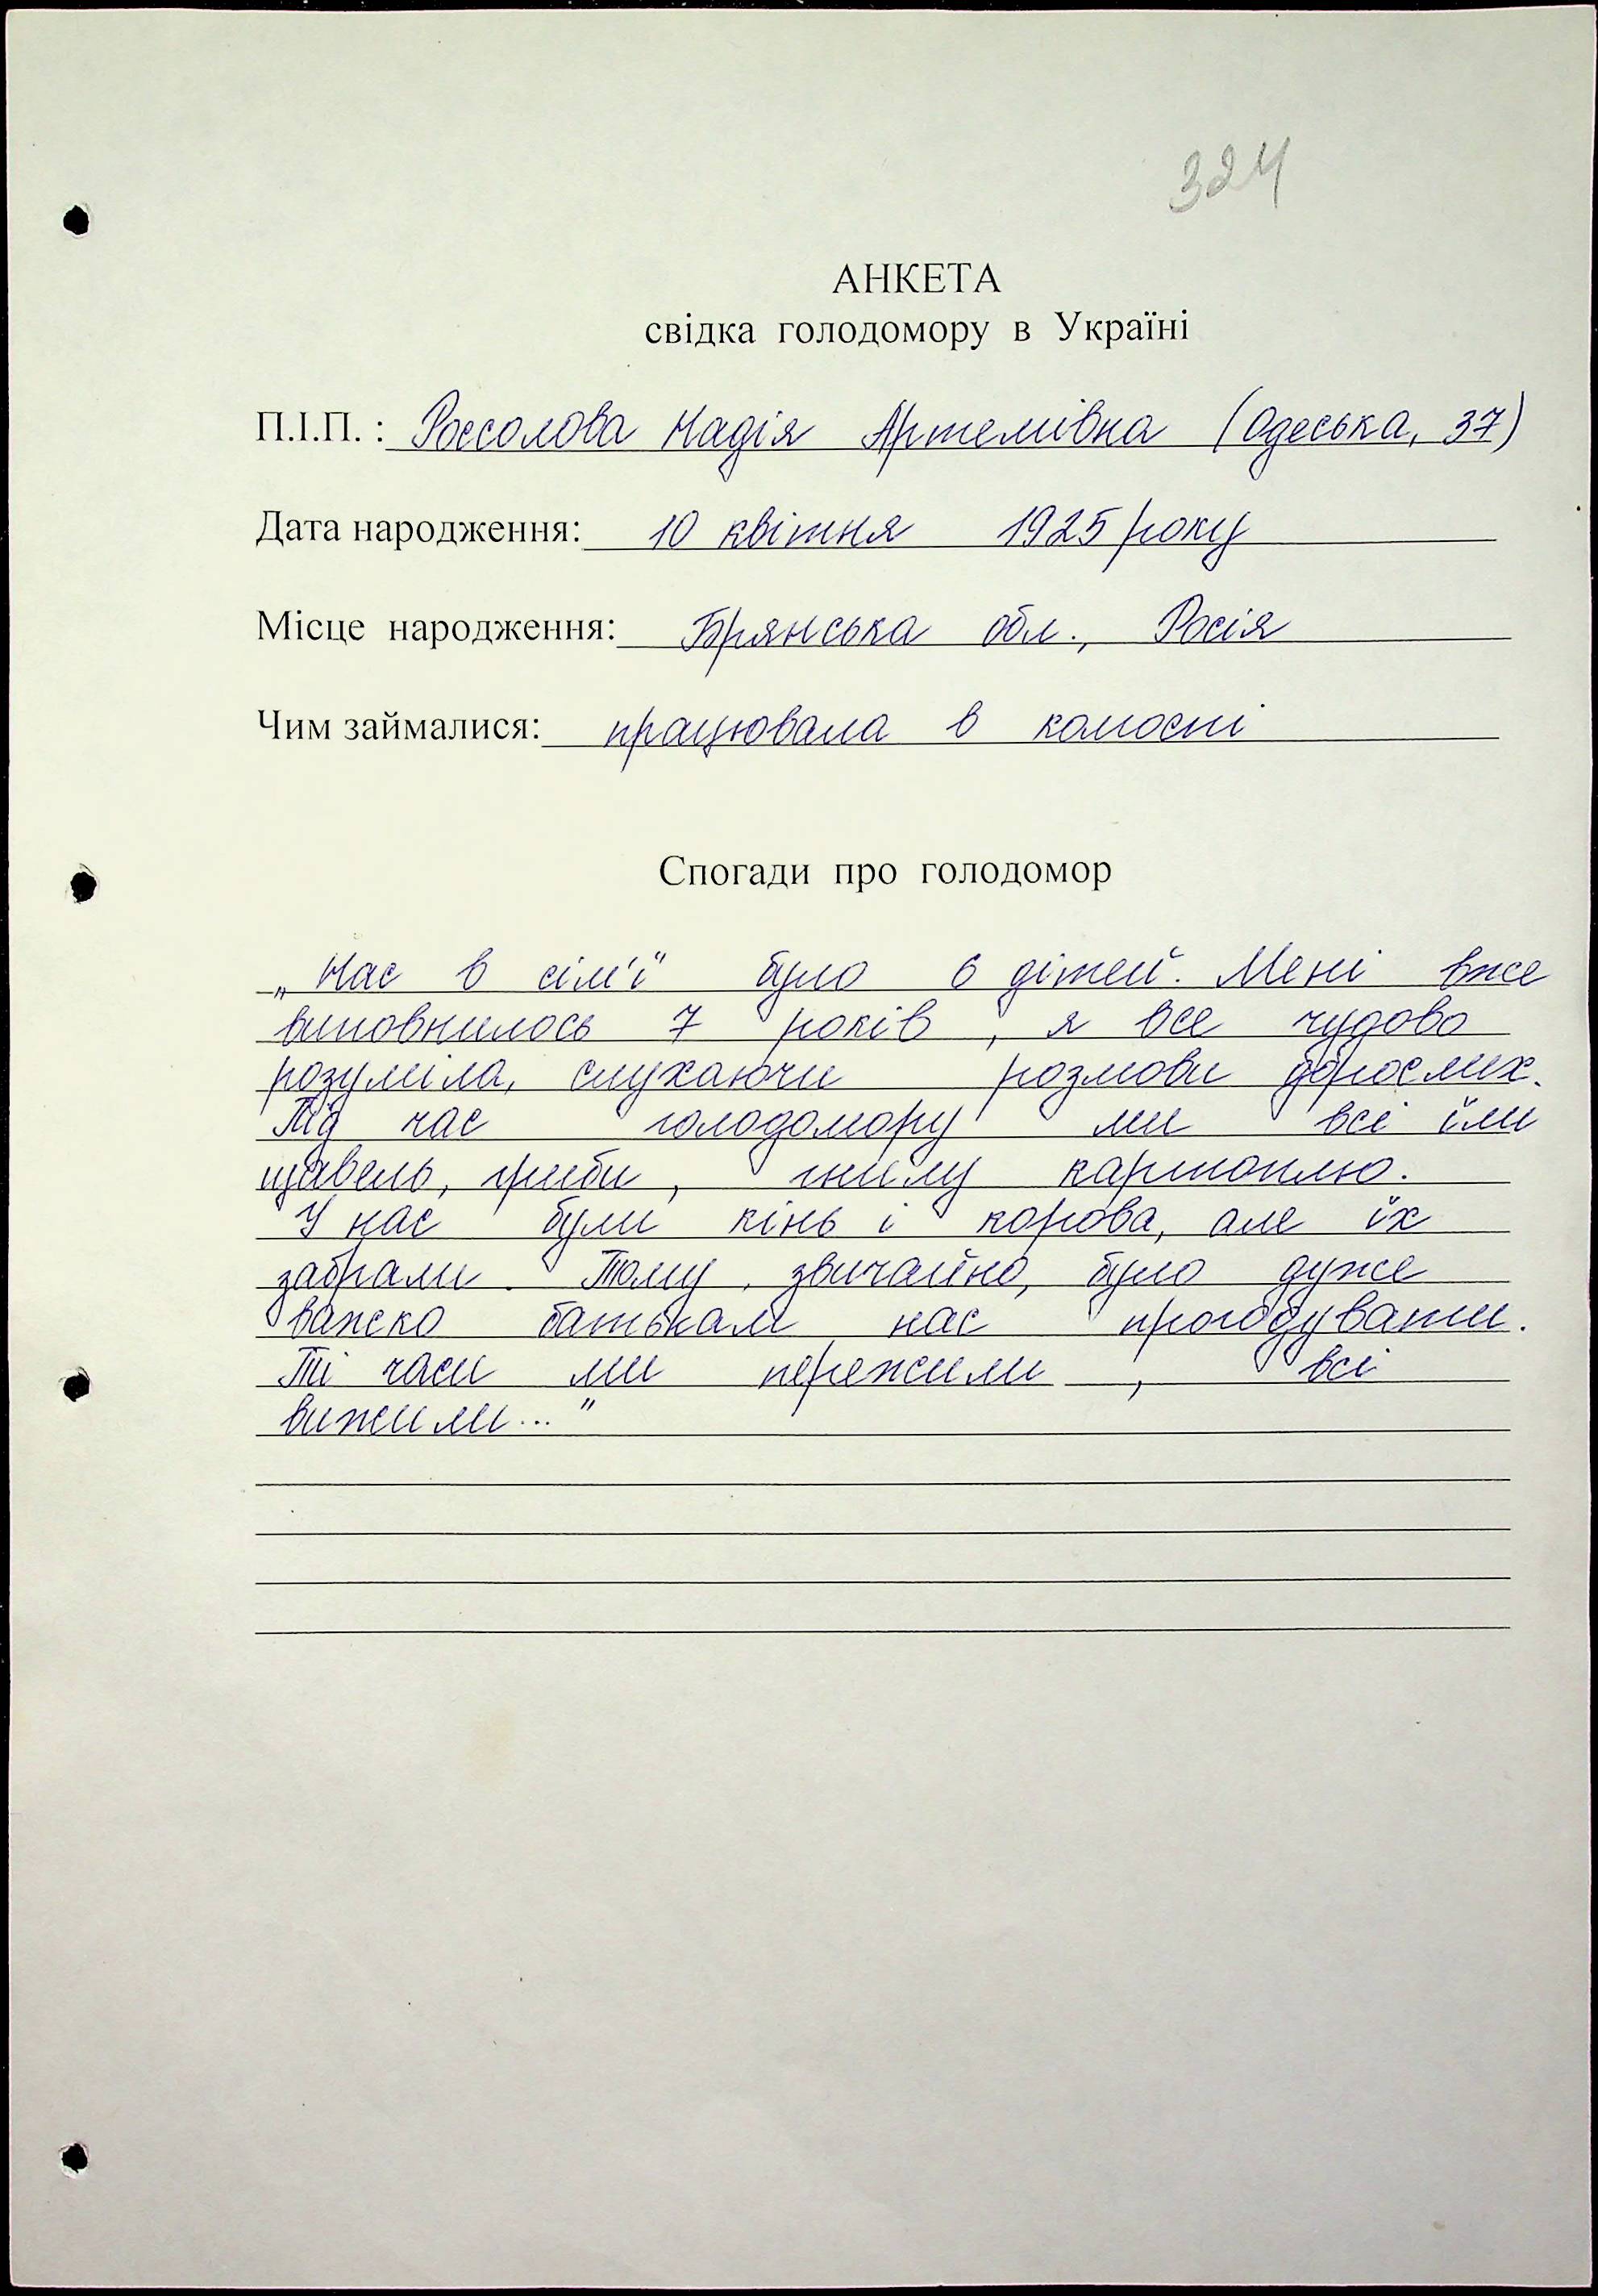 324
АНКЕТА
свідка голодомору в Україні
П.І.П. : Россолова Надія Артемівна (Одеська, 37)
Дата народження: 10 квітня 1925 року
Місце народження: Брянська обл., Росія
Чим займалися: працювала в колгоспі
Спогади про голодомор
„Нас в сім'ї було 6 дітей. Мені вже
виповнилось 7 років, я все чудово
розуміла, слухаючи розмови дорослих.
Під час голодомору ми всі їли
щавель, гриби, гнилу картоплю.
У нас були кінь і корова, але їх
забрали. Тому, звичайно, було дуже
важко батькам нас прогодувати.
Ті часи ми пережили, всі
вижили..."